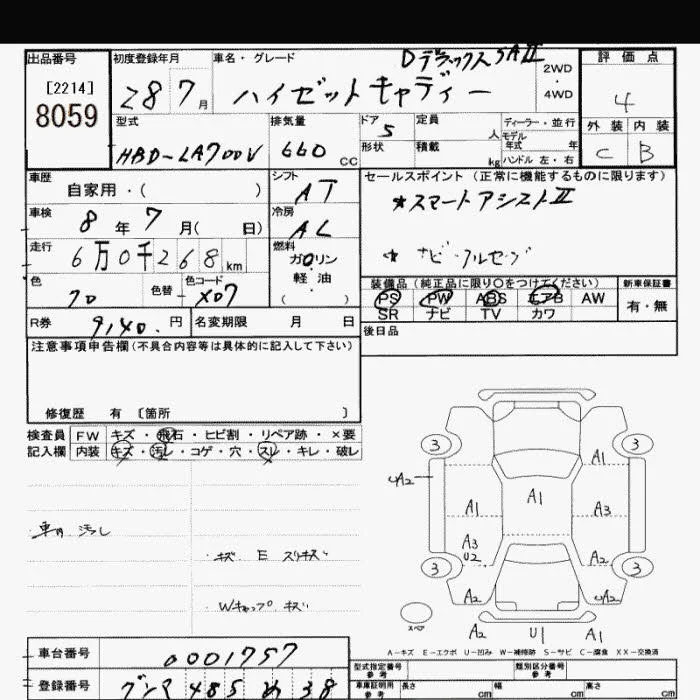 出品番号
[2214]
8059
初度登録年月
28 7月
車名・グレード
DデラックスSAⅡ
ハイゼットキャディー
2WD
4WD
評価点
4
外装 内装
C B
型式
HBD-LA700V
排気量
660 CC
ドア
5
形状
定員
人
積載
kg
ディーラー・並行
モデル
年式 年
ハンドル 左・右
車歴
自家用・( )
シフト
AT
車検
8年7月( 日)
冷房
AC
走行
6万0千268km
燃料
ガソリン
・
軽油
( )
色
色替
色コード
X07
R券
9,140.円
名変期限 月 日
セールスポイント(正常に機能するものに限ります)
*スマートアシストⅡ
* ナビ・フルセグ
装備品(純正品に限り○をつけてください)
PS PW ABS エアB AW
SR ナビ TV カワ
新車保証書
有・無
後日品
注意事項申告欄(不具合内容等は具体的に記入して下さい)
修復歴 有〔箇所 〕
検査員
記入欄
FW キズ・飛石・ヒビ割・リペア跡・×要
内装 キズ・汚レ・コゲ・穴・スレ・キレ・破レ
車内 汚レ
キズ E スリキズ
Wキャップ キズ
3 3
A1
A2
A1 A1 A3
A3
U2
A2
3 3
A2
スペア
A2 U1 A2
A-キズ E-エクボ U-凹み W-補修跡 S-サビ C-腐食 XX-交換済
車台番号
0001757
登録番号
485 38
型式指定番号
参考
類別区分番号
参考
車庫証明用
参考
長さ cm 幅 cm 高さ cm